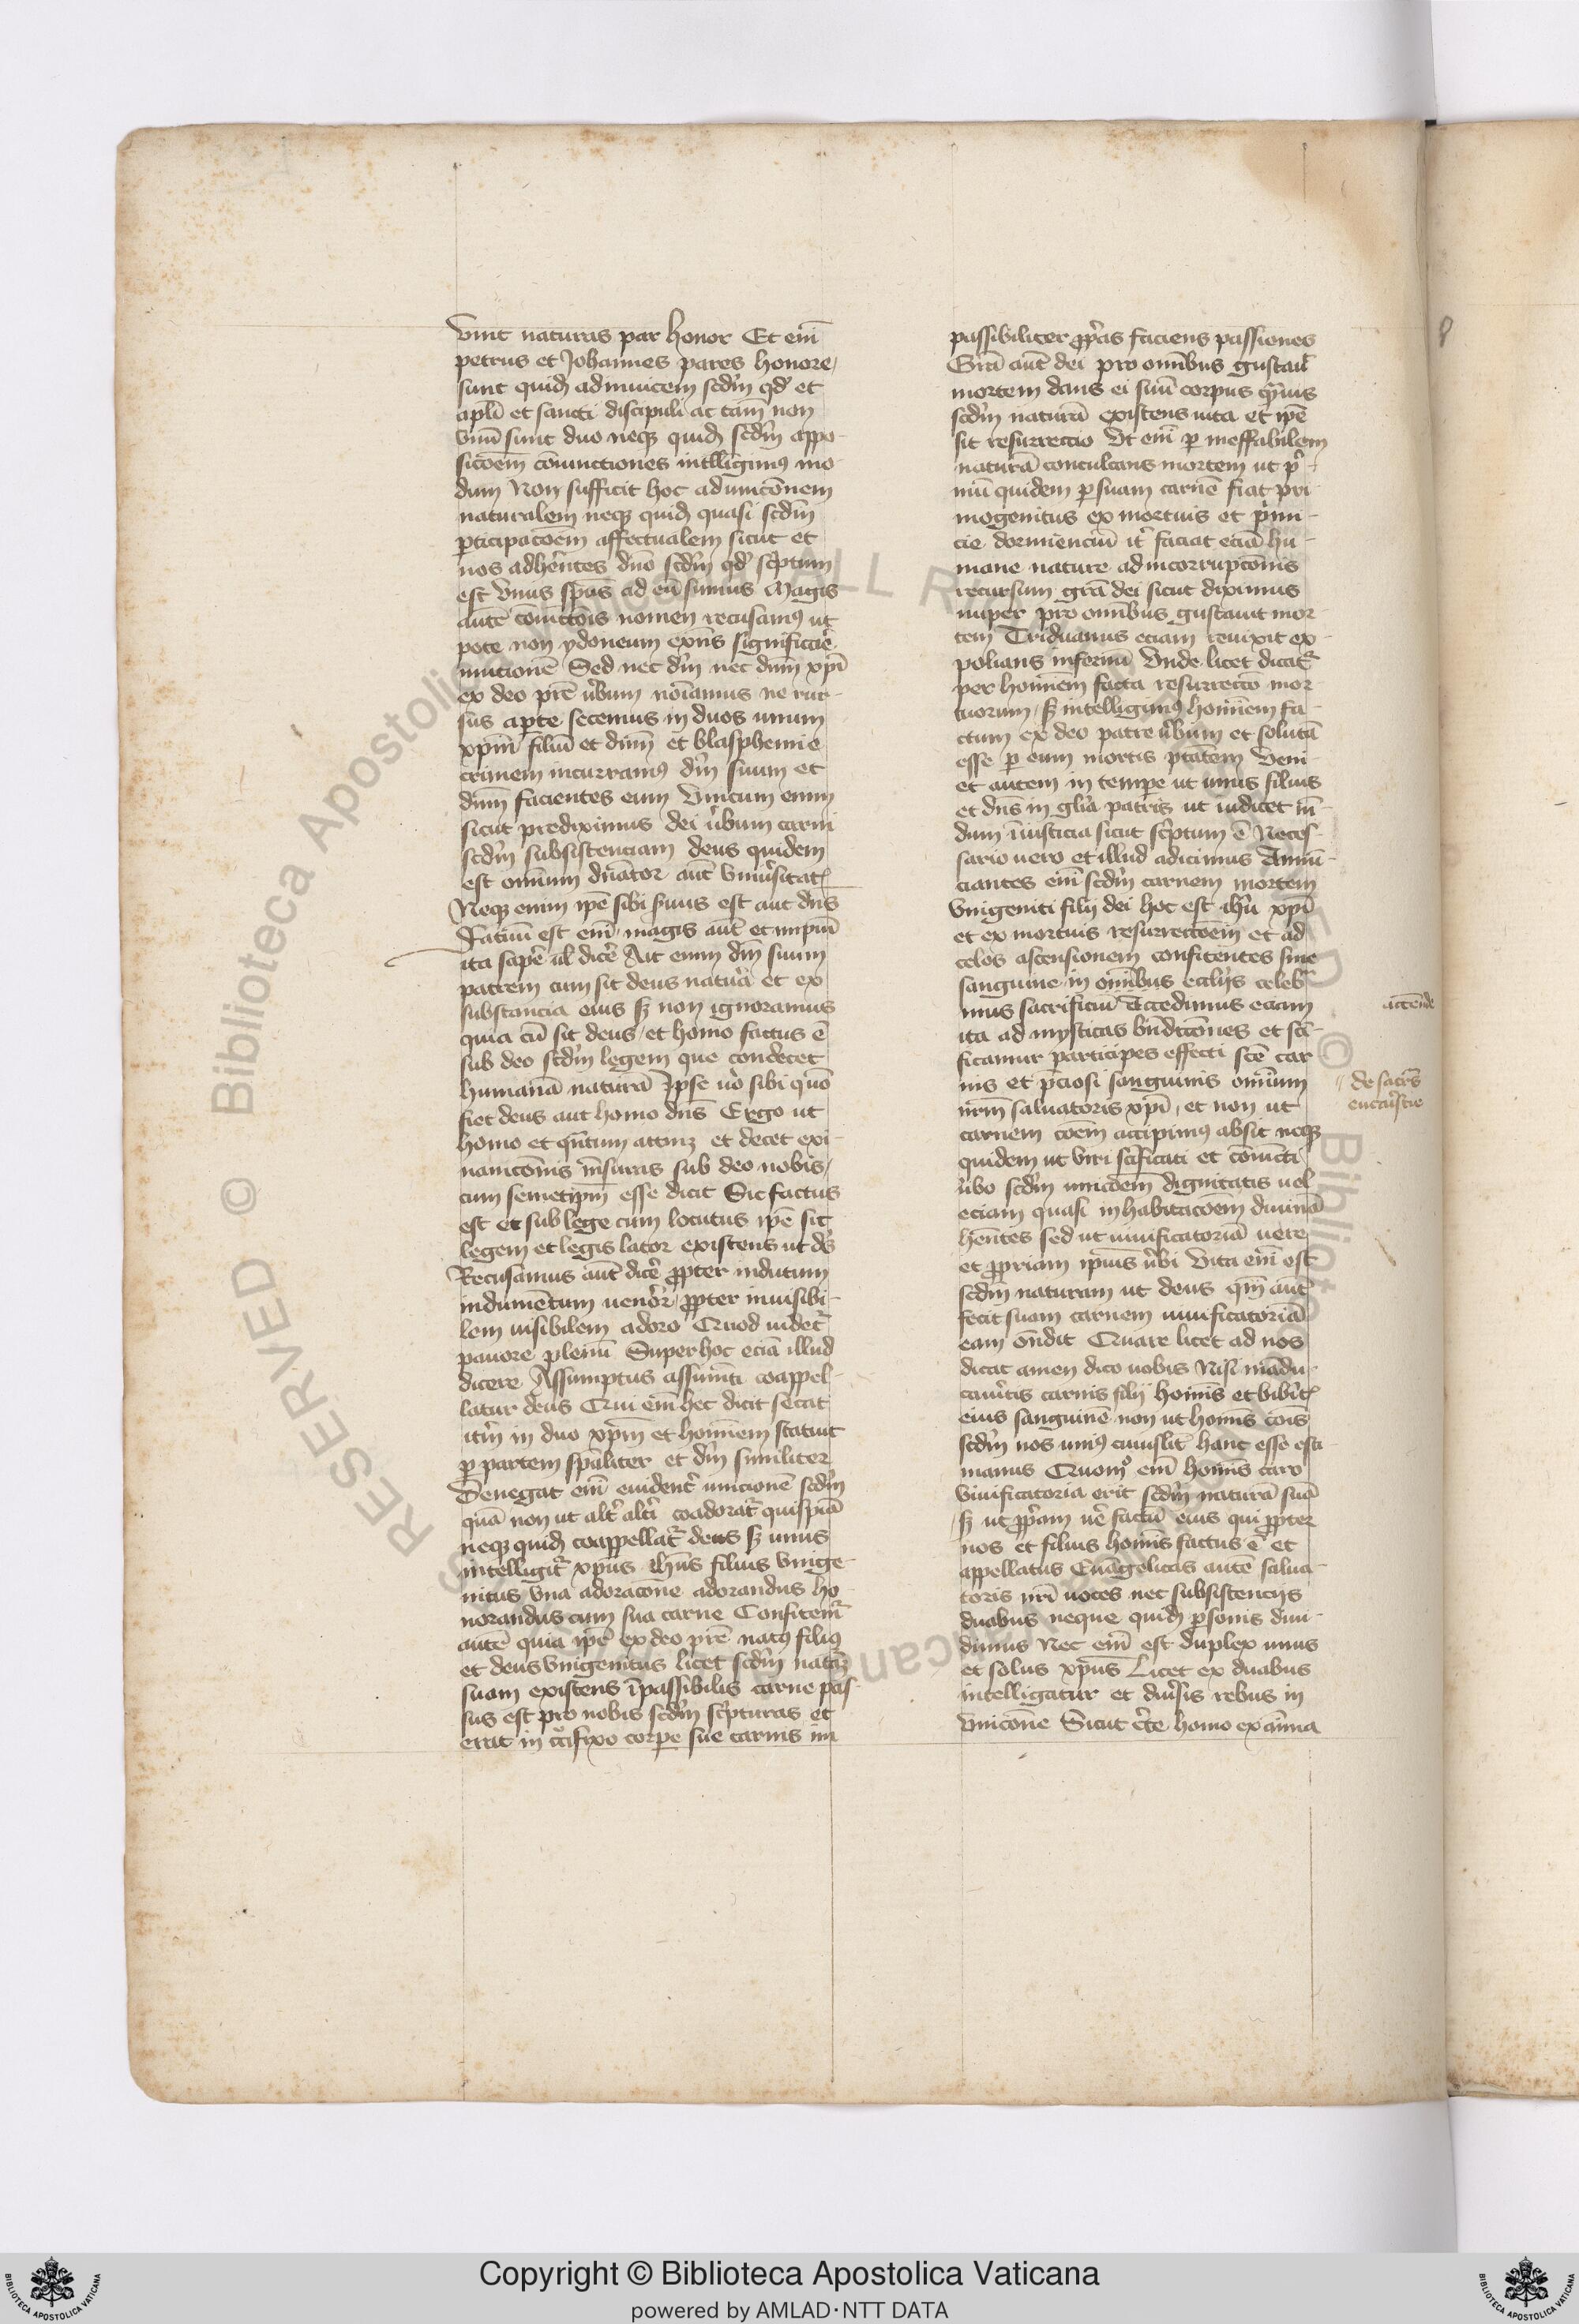 vnit naturas par honor Et eni͞
petrus et Johannes pares honore
sunt quidē adinuicem scdm̄ qd̓ et
apl̄i et sancti discipuli ac tam̄ non
vnū sunt duo neqꝫ quidē scdm̄ appo-
sicōem cōiunctiones intelligimꝰ mo-
dum Non sufficit hoc ad unicōnem
naturalem neqꝫ quidē quasi scdm̄
ꝑticipacōem affectualem sicut et
nos adhe̓ntes dn̄o scdm̄ qd̓ sc̓ptum
est Vnus sp̄us ad eū sumus Magis
autē coniūctōis nomen recusamꝰ ut
pote non ydoneum exn̄s significare̓
unicionē Sed nec dm̄ nec dnm̄ xp̄i
ex deo pr̄e v̓bum noīamus ne rur-
sus aperte secemus in duos unum
xp̄m filiū et dnm̄ et blasphemie
crimen incurramꝰ dm̄ suum et
dnm̄ facientes eum Vnicum enim
sicut prediximus dei v̓bum carni
scdm̄ subsistenciam deus quidem
est omnium dn̄ator aut̄ vniu̓sitatꝭ
Neqꝫ enim ip̄e sibi seruus est aut dn̄s
Fatuū est eni͞ magis aut̄ et impiū
ita sape̓ ul̄ dice̓ Ait enim dm̄ suum
patrem cum sit deus natu̓a et ex
substancia eius sꝫ non ignoramus
quia cū sit deus et homo factus ē
sub deo scdm̄ legem que condecet
humanā naturā Ipse vo̓ sibi quō
fiet deus aut homo dn̄s Ergo ut
homo et quātum attinꝫ et decet exi-
nanicōnis me̓suras sub deo nobis
cum semetipm̄ esse dicit Sic factus
est et sub lege cum locutus ip̄e sit
legem et legis lator existens ut ds̓
Recusamus aut̄ dice̓ ꝓpter indutum
indumentum uenor̓ ꝓpter inuisibi-
lem uisibilem adoro Quod uidet̓
pauore plenū Super hoc eciā illud
dicere Assumptus assumēti coappel-
latur deus Qui eni͞ hec dicit secat
ite̓m in duo xp̄m et hominem statuit
ꝑ partem spāliter et dm̄ similiter
Denegat eni͞ euident̓ unicionē scdm̄
quā non ut alt̓ alt̓i coadorat̓ quispiā
neqꝫ quidē coappellat̓ deus sꝫ unus
intelligit̓ xp̄us ih̄us filius vnige-
nitus vna adoracōne adorandus ho-
norandus cum sua carne Confitem̓
autē quia ip̄e ex deo pr̄e natꝰ filiꝰ
et deus vnigenitus licet scdm̄ nat̓ā
suam existens īpassibilis carne pas-
sus est pro nobis scdm̄ sc̓pturas et
erat in cr̓cifixo corpe̓ sue carnis im
passibiliter ꝓp̓as faciens passiones
Grā aut̄ dei pro omībus gustauit̓
mortem dans ei suū corpus quāuis
scdm̄ naturā existens uita et ip̄e
sit resurrectio Vt eni͞ ꝑ ineffabilem
naturā conculcans mortem ut p̓-
mū quidem ꝑ suam carnē fiat pri-
mogenitus ex mortuis et p̓mi-
cie dormienciū it̓ faciat eciā hu-
mane nature ad incorrupcōnis
recursum grā dei sicut diximus
nuper pro omībus gustauit mor
tem Triduanus eciam reuixit ex-
polians infernū Vnde licet dicat̓
per hominem facta resurrectō mor-
tuorum sꝫ intelligimꝰ hominem fa-
ctum ex deo patre v̓bum et solutā
esse ꝑ eum mortis p̄tatem Veni-
et autem in tempe̓ ut unus filius
et dn̄s in glia̓ patris ut iudicet mū-
dum ī iusticia sicut sc̓ptum ē Neces-
sario uero et illud adicimus Annū-
ciantes eni͞ scdm̄ carnem mortem
vnigeniti filij dei hoc est ih̄u xp̄i
et ex mortuis resurrectōem et ad
celos ascensionem confitentes sine
sanguine in omībus eccl̄ijs celebr̄
mus sacrificiū Accedimus eciam
ita ad mysticas bn̄dictōnes et scī-
ficamur participes effecti scē car
nis et p̄ciosi sanguinis omnium
nr̄m saluatoris xp̄i et non ut
carnem cōem accipimꝰ absit neqꝫ
quidem ut viri scīficati et cōiūcti
v̓bo scdm̄ unicōem dignitatis uel
eciam quasi inhabitacōem diuinā
hēntes sed ut uiuificatoriā uere
et ꝓpriam ip̄ius v̓bi Vita eni͞ est
scdm̄ naturam ut deus qm̄ aut̄
fecit suam carnem uiuificatoriā
eam ōndit Quare licet ad nos
dicat amen dico uobis Nisi mādu-
caue̓tis carnis filij hominis et bibe̓tꝭ
eius sanguinē non ut hominis cōis
scdm̄ nos unius cuiuslit̓ hanc esse esti-
manus Quomō eni͞ hominis caro
viuificatoria erit scdm̄ naturā suā
sꝫ ut ꝓp̓am ue̓ factā eius qui ꝓpter
nos et filius hominis factus ē et
appellatus Euāgelicas autē salua-
toris nr̄i uoces nec subsistencijs
duabus neque quidē ꝑsonis diui-
dimus Nec eni͞ est duplex unus
et solus xp̄us Licet ex duabus
intelligatur et diue̓sis rebus in
vnicōne Sicut ce̓te homo ex anima
attende
de sacr̄o
eucar̓stie